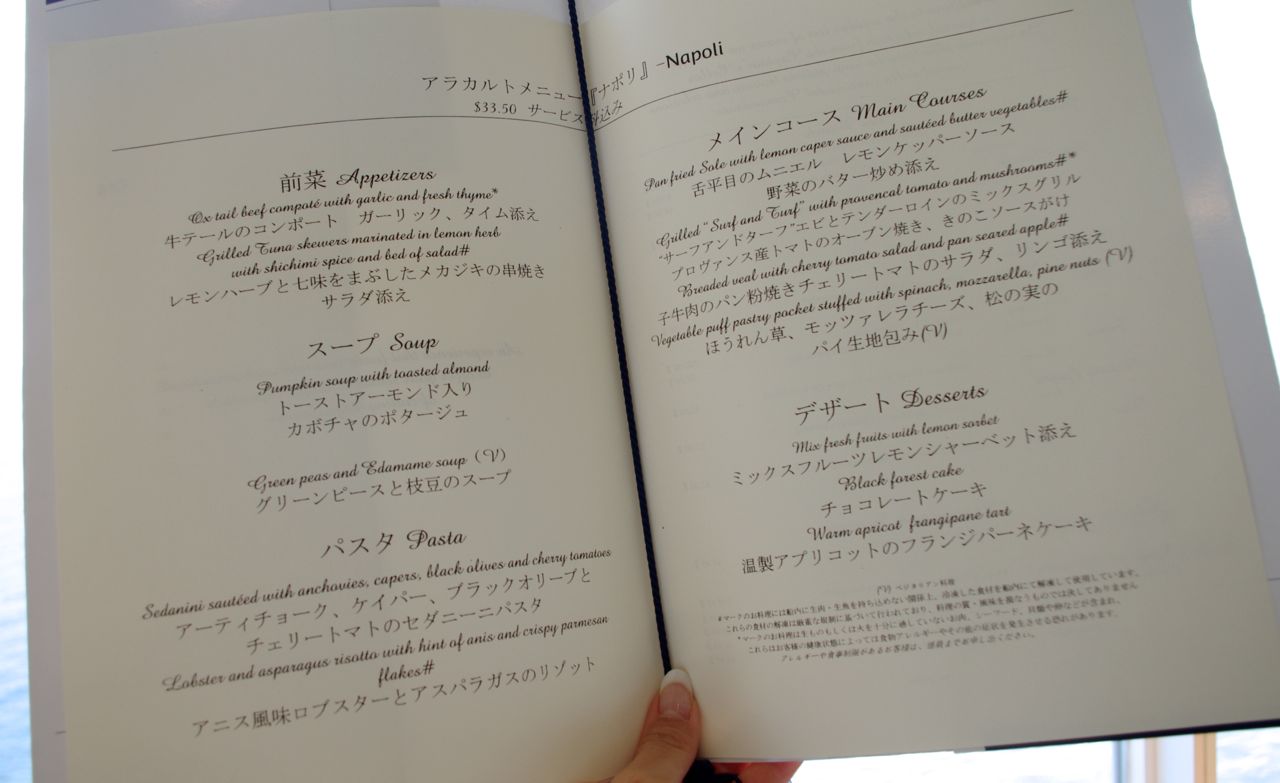 アラカルトメニュー『ナポリ』-Napoli
$33.50 サービス料込み
前菜 Appetizers
Ox tail beef compoté with garlic and fresh thyme*
牛テールのコンポート ガーリック、タイム添え
Grilled Tuna skewers marinated in lemon herb
with shichimi spice and bed of salad#
レモンハーブと七味をまぶしたメカジキの串焼き
サラダ添え
スープ Soup
Pumpkin soup with toasted almond
トーストアーモンド入り
カボチャのポタージュ
Green peas and Edamame soup (V)
グリーンピースと枝豆のスープ
パスタ Pasta
Sedanini sautéed with anchovies, capers, black olives and cherry tomatoes
アーティチョーク、ケイパー、ブラックオリーブと
チェリートマトのセダニーニパスタ
Lobster and asparagus risotto with hint of anis and crispy parmesan
flakes#
アニス風味ロブスターとアスパラガスのリゾット
メインコース Main Courses
Pan fried Sole with lemon caper sauce and sautéed butter vegetables#
舌平目のムニエル レモンケッパーソース
野菜のバター炒め添え
Grilled "Surf and Turf" with provencal tomato and mushrooms#*
"サーフアンドターフ"エビとテンダーロインのミックスグリル
プロヴァンス産トマトのオーブン焼き、きのこソースがけ
Breaded veal with cherry tomato salad and pan seared apple#
子牛肉のパン粉焼きチェリートマトのサラダ、リンゴ添え
Vegetable puff pastry pocket stuffed with spinach, mozzarella, pine nuts (V)
ほうれん草、モッツァレラチーズ、松の実の
パイ生地包み(V)
デザート Desserts
Mix fresh fruits with lemon sorbet
ミックスフルーツレモンシャーベット添え
Black forest cake
チョコレートケーキ
Warm apricot frangipane tart
温製アプリコットのフランジパーネケーキ
(V) ベジタリアン料理
#マークのお料理には船内に生肉・生魚を持ち込めない関係上、冷凍した食材を船内にて解凍して使用しています。
これらの食材の解凍は厳重な規制に基づいて行われており、料理の質・風味を損なうものでは決してありません
*マークのお料理は生ものもしくは火を十分に通していないお肉、シーフード、貝類や卵などが含まれ、
これらはお客様の健康状態によっては食物アレルギーやその他の症状を発生させる恐れがあります。
アレルギーや食事制限があるお客様は、係員までお申し出ください。